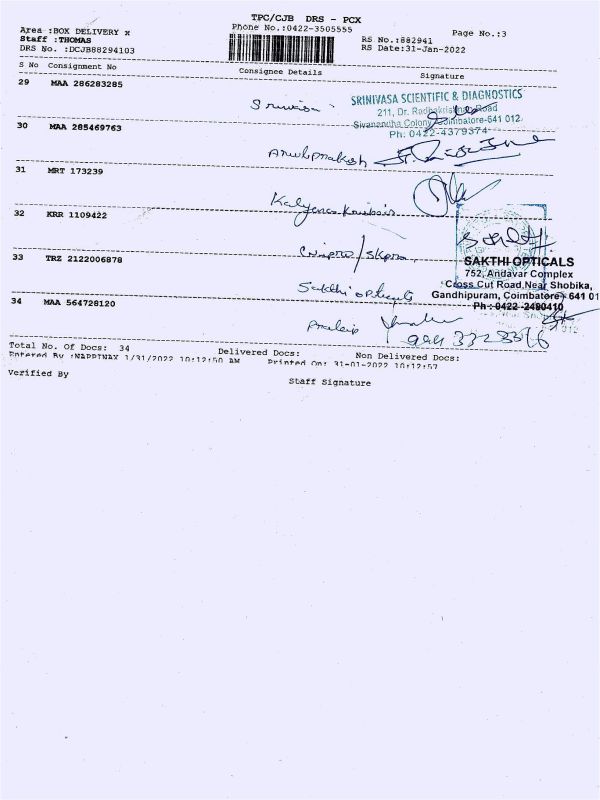 TPC/CJB DRS - PCX
Area :BOX DELIVERY x
Phone No.:0422-3505555
Page No.:3
Staff :THOMAS
RS No.:882941
DRS No. :DCJB88294103
RS Date:31-Jan-2022
S No Consignment No
Consignee Details
Signature
29 MAA 286283285
SRINIVASA SCIENTIFIC & DIAGNOSTICS
211, Dr. Radhakrishnan Road
Sivanandha Colony Coimbatore-641 012.
Ph: 0422-4379374
30 MAA 285469763
31 MRT 173239
32 KRR 1109422
33 TRZ 2122006878
SAKTHI OPTICALS
752, Andavar Complex
Cross Cut Road Near Shobika,
Sakthi opticals
Gandhipuram, Coimbatore - 641 01
Ph : 0422 -2480410
34 MAA 564728120
Total No. Of Docs: 34
Delivered Docs:
Non Delivered Docs:
Entered By :NAPPINAY 1/31/2022 10:12:50 AM
Printed On: 31-01-2022 10:12:57
Verified By
Staff Signature